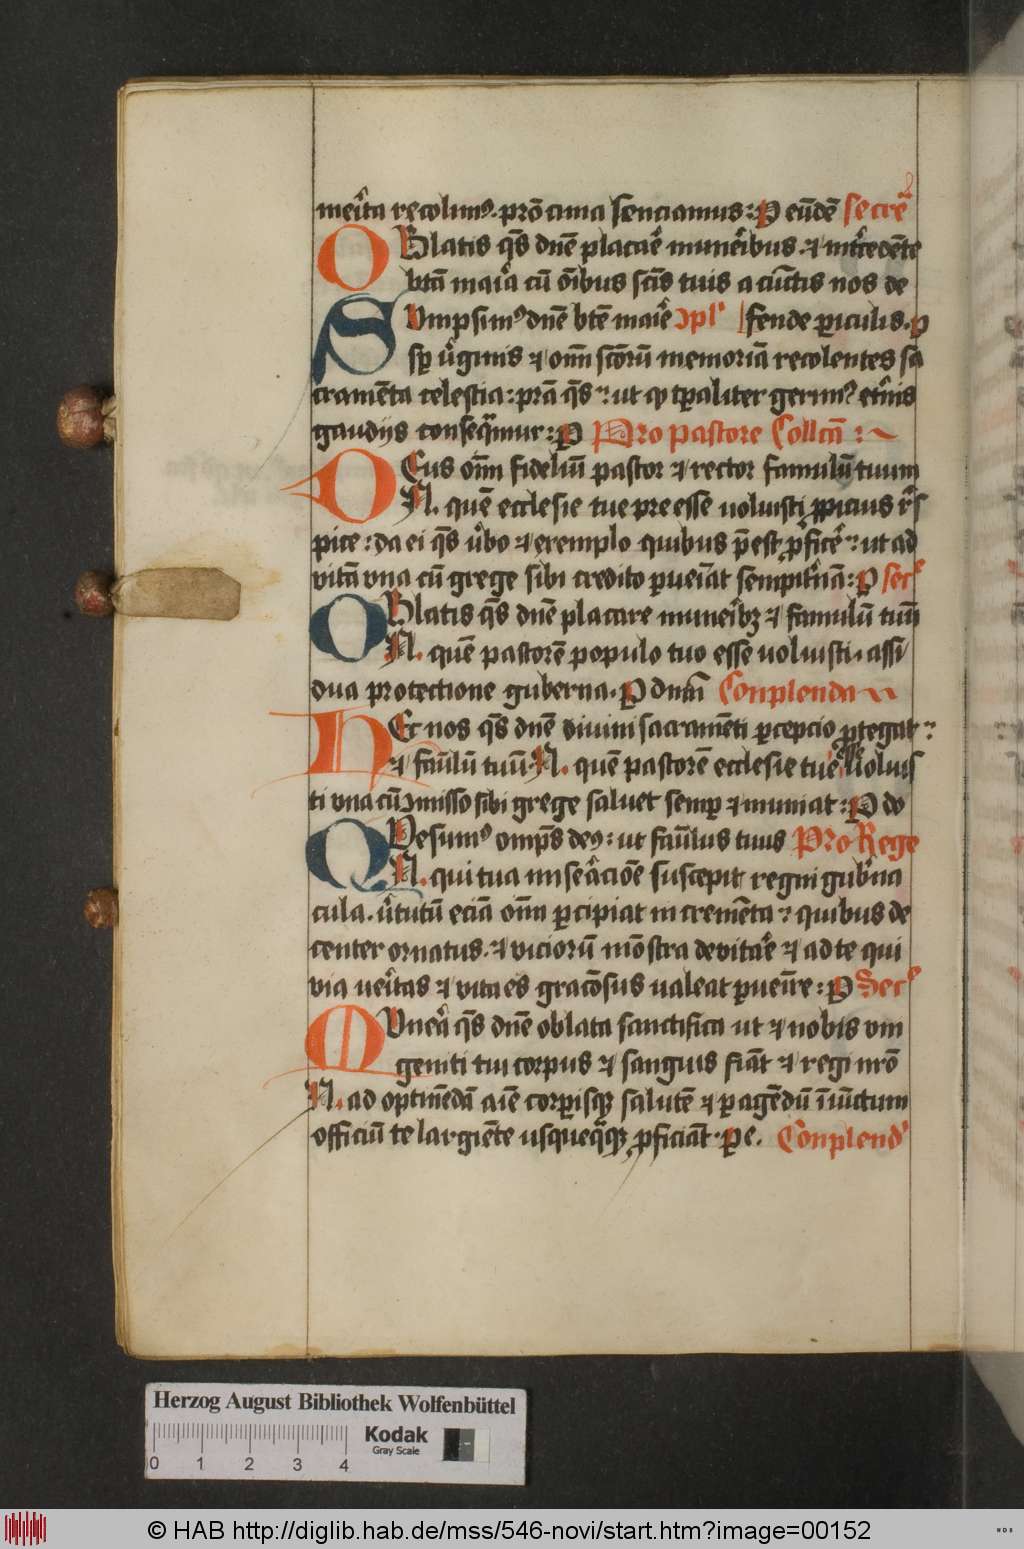 meĩta recolimꝰ. prõcinia senciamus: P eũdẽ secrẽ
OBlatis q̃s dñe placaẽ munẽibus. ⁊ int̾cedẽte
btã maiã cũ õibus scĩs tuis a cũctis nos de
SVmpsimꝰ dñe btẽ maiẽ ↄplꝰ fende ꝑiculis. p
sꝑ ũginis ⁊ oım̃ sctõrũ memoriã recolentes sa
cramẽta celestia: prã q̃s: ut qͦ tꝑaliter gerimꝰ et̾nis
gaudijs conseqͣmur: P Pro pastore Collcã:
DEus oım̃ fideliũ pastor ⁊ rector famulũ tuum
N. quẽ ecclesie tue preesse uoluisti ꝓpicius r̾s
pice: da ei q̃s ũbo ⁊ exemplo quibus p̃est ꝓficẽ: ut ad
vitã vna cũ grege sibi credito ꝑueĩat sempit̾nã: P secꝰ
OBlatis q̃s dñe placare muneĩbꝫ ⁊ famulũ tuũ
N. quẽ pastorẽ populo tuo esse uoluisti. assi
dua protectione guberna. P dnm̃ Conplenda
HEc nos q̃s dñe diuini sacramẽti ꝑcepcio ꝓtegat:
⁊ fam̃lũ tuũ N. quẽ pastorẽ ecclesie tue uoluis
ti vna cũ ↄmisso sibi grege saluet semꝑ ⁊ muniat: P do
QVesumꝰ omps̃ deꝰ: ut fam̃lus tuus Pro Rege
N. qui tua miseãciõe suscepit regni gub̾na
cula. ũtutũ eciã oım̃ ꝑcipiat incremẽta: quibus de
center ornatus. ⁊ viciorũ mõstra deuitaẽ ⁊ ad te qui
via ueĩtas ⁊ vita es gracõsus ualeat ꝑueñre: P Secꝰ
MVneã q̃s dñe oblata sanctifica ut ⁊ nobis vni
geniti tui corpus ⁊ sanguis fiãt ⁊ regi nrõ
N. ad optinẽdã aiẽ corꝑisqꝫ salutẽ ⁊ ꝑagẽdũ ĩiũctum
officiũ te largiẽte usqueqͣqꝫ ꝓficiãt. Pe. Conplendꝰ
Herzog August Bibliothek Wolfenbüttel
Kodak
Gray Scale
0 1 2 3 4
© HAB http://diglib.hab.de/mss/546-novi/start.htm?image=00152